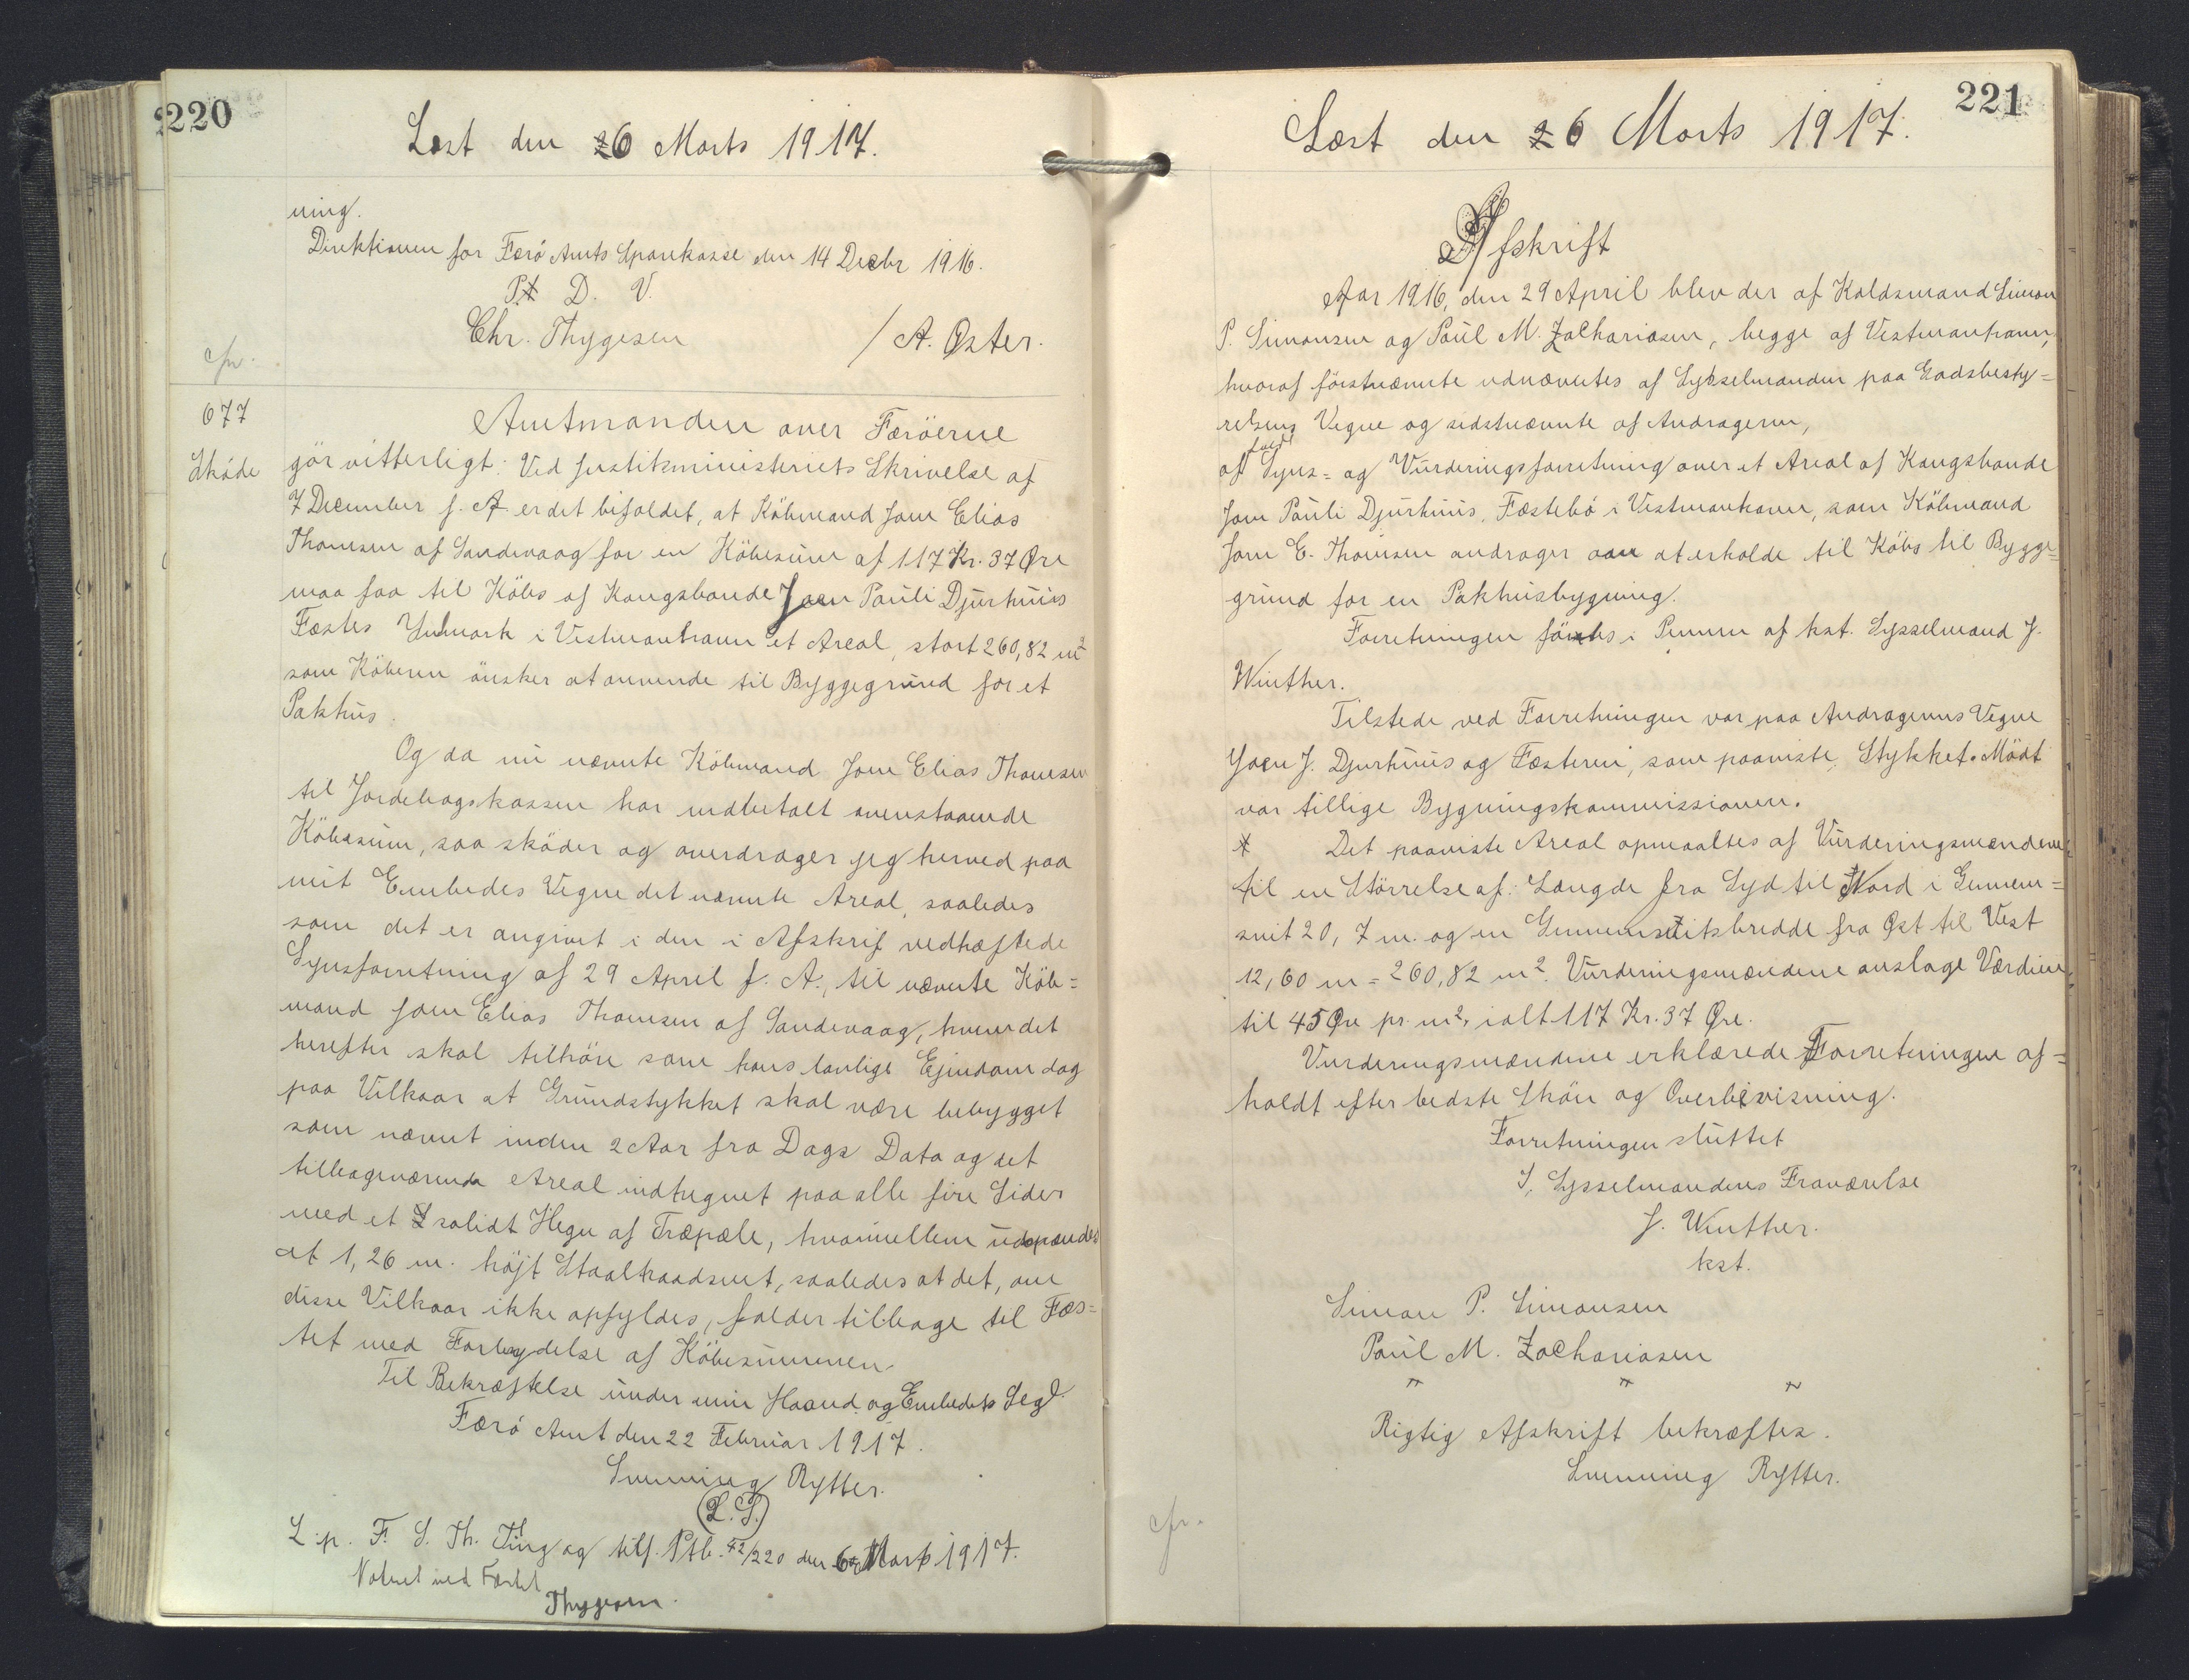 220
Læst den 26 Marts 1917.
ning.
Direktionen for Færö Amts Sparekasse den 14 Decbr 1916.
P. t. D. V.
Chr. Thygesen / A. Öster.
cfr.
677
Skøde
Amtmanden over Færöerne
gör vitterligt: Ved Justitsministeriets Skrivelse af
7 December f. A. er det bifaldet, at Köbmand Joen Elias
Thomsen af Sandevaag for en Köbesum af 117 Kr. 37 Øre
maa faa til Köbs af Kongsbonde Joen Pauli Djurhuus
Fæstes Indmark i Vestmanhavn et Areal, stort 260,82 m²
som Köberen önsker at anvende til Byggegrund for et
Pakhus.
Og da nu nævnte Köbmand Joen Elias Thomsen
til Jordebogskassen har indbetalt ovenstaaende
Köbesum, saa sköder og overdrager jeg herved paa
mit Embedes Vegne det nævnte Areal, saaledes
som det er angivet i den i Afskrif vedhæftede
Synsforretning af 29 April f. A., til nævnte Köb=
mand Joen Elias Thomsen af Sandevaag, hvem det
herefter skal tilhöre som hans lovlige Ejendom dog
paa Vilkaar at Grundstykket skal være bebygget
som nævnt inden 2 Aar fra Dags Dato og det
tilbageværende Areal indhegnet paa alle fire Sider
med et solidt Hegn af Træpæle, hvorimellem udspændes
et 1,26 m. höjt Staaltraadsnet, saaledes at det, om
disse Vilkaar ikke opfyldes, falder tilbage til Fæs=
tet med Fortydelse af Köbesummen.
Til Bekræftelse under min Haand og Embedets Segl.
Færö Amt den 22 Februar 1917.
Svenning Rytter.
(L. S.)
L. p. F. S. Th. Ting og tilf. Ptb. 42/220 den 6 Marts 1917.
Noteret ved Fæstet
Thygesen.
221
Læst den 26 Marts 1917.
Afskrift
Aar 1916, den 29 April blev der af Koldsmand Simon
P. Simonsen og Poul M. Zachariasen, begge af Vestmanhavn,
hvoraf förstnævnte udnævntes af Sysselmanden paa Godsbesty=
relsens Vegne og sidstnævnte af Andrageren,
afholdt Syns= og Vurderingsforretning over et Areal af Kongsbonde
Joen Pauli Djurhuus, Fæstebö i Vestmanhavn, som Köbmand
Joen E. Thomsen andrager om at erholde til Köbs til Bygge=
grund for en Pakhusbygning.
Forretningen förtes i Pennen af kst. Sysselmand J.
Winther.
Tilstede ved Forretningen var paa Andragerens Vegne
Joen J. Djurhuus og Fæsteren, som paaviste Stykket. Mödt
var tillige Bygningskommissionen.
Det paaviste Areal opmaaltes af Vurderingsmændene
til en Störrelse af: Længde fra Syd til Nord i Gennem=
snit 20, 7 m. og en Gennemsnitsbredde fra Øst til Vest
12,60 m = 260,82 m². Vurderingsmændene anslage Værdien
til 45 Øre pr. m², ialt 117 Kr. 37 Øre.
Vurderingsmændene erklærede Forretningen af=
holdt efter bedste Skön og Overbevisning.
Forretningen sluttet
I, Sysselmandens Fraværelse
J. Winther.
kst.
Simon P. Simonsen
Poul M. Zachariasen
" " "
Rigtig Afskrift bekræftes.
Svenning Rytter.
cfr.